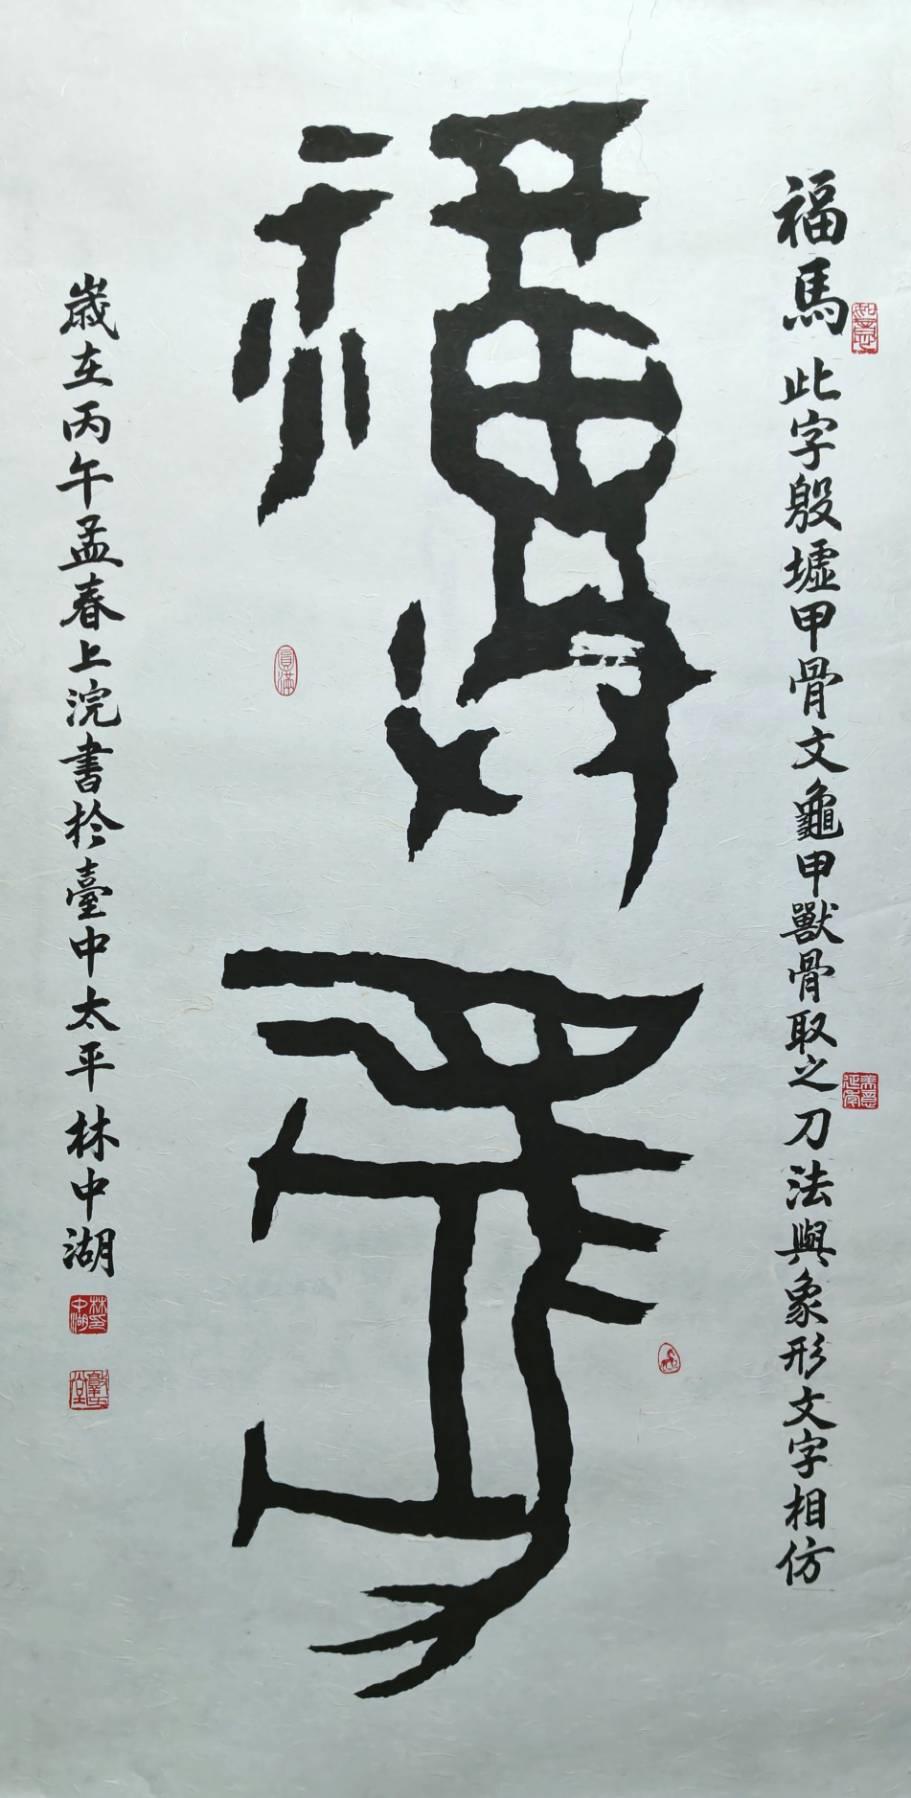 福馬 此字殷墟甲骨文龜甲獸骨取之刀法與象形文字相仿
福馬
歲在丙午孟春上浣書於臺中太平林中湖
如意
圓滿
林中湖印